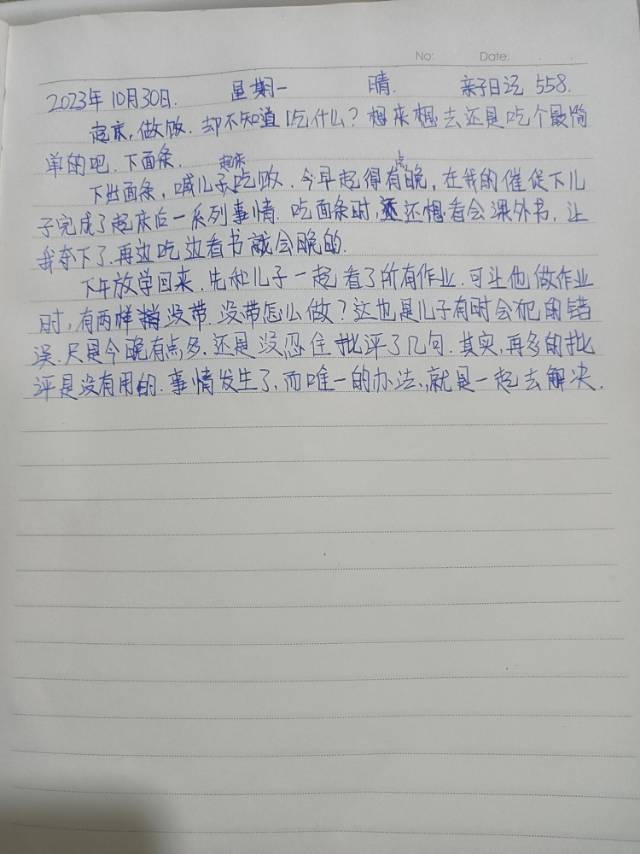 No:    Date:
2023年10月30日.    星期一    晴.    亲子日记 558.
起床,做饭.却不知道吃什么?想来想去还是吃个最简
单的吧.下面条.
下出面条,喊儿子起床吃饭.今早起得有点晚,在我的催促下儿
子完成了起床后一系列事情.吃面条时,还想看会课外书,让
我夺下了.再边吃边看书就会晚的.
下午放学回来.先和儿子一起看了所有作业.可让他做作业
时,有两样没带.没带怎么做?这也是儿子有时会犯的错
误.只是今晚有点多.还是没忍住批评了几句.其实,再多的批
评是没有用的.事情发生了,而唯一的办法,就是一起去解决.